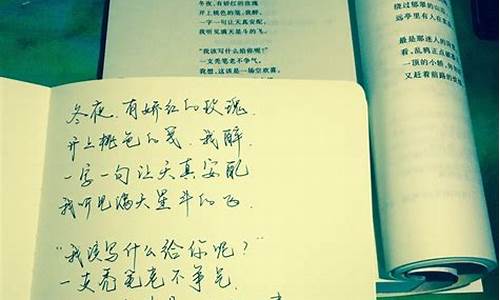 冬夜,有娇红的玫瑰
开上桃色的笺,我醉,
一字一句让天真安配
我听见满天星斗的飞。
“我该写什么给你呢?”
一支秃笔老不争气,
我想,这该是一场空欢喜。
绕过郁翠的山
远亭里有人在
最是那迷人的
看,乱鸦正点
一顶的小轿,
又赶着前路的
冬夜,有娇红的玫瑰,
开上桃色的笺,我醉,
一字一句让天真安配
我听见满天星斗的飞
“我该写什么给你呢?”
一支秃笔老不争气,